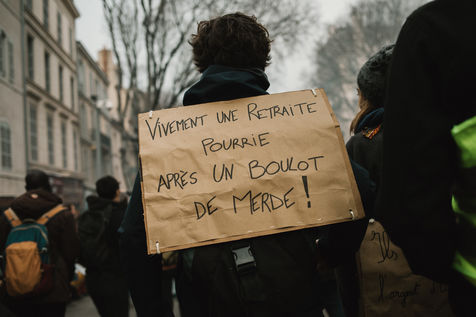 Vivement une Retraite
Pourrie
Après un Boulot
de Merde !
Ils
l'argent